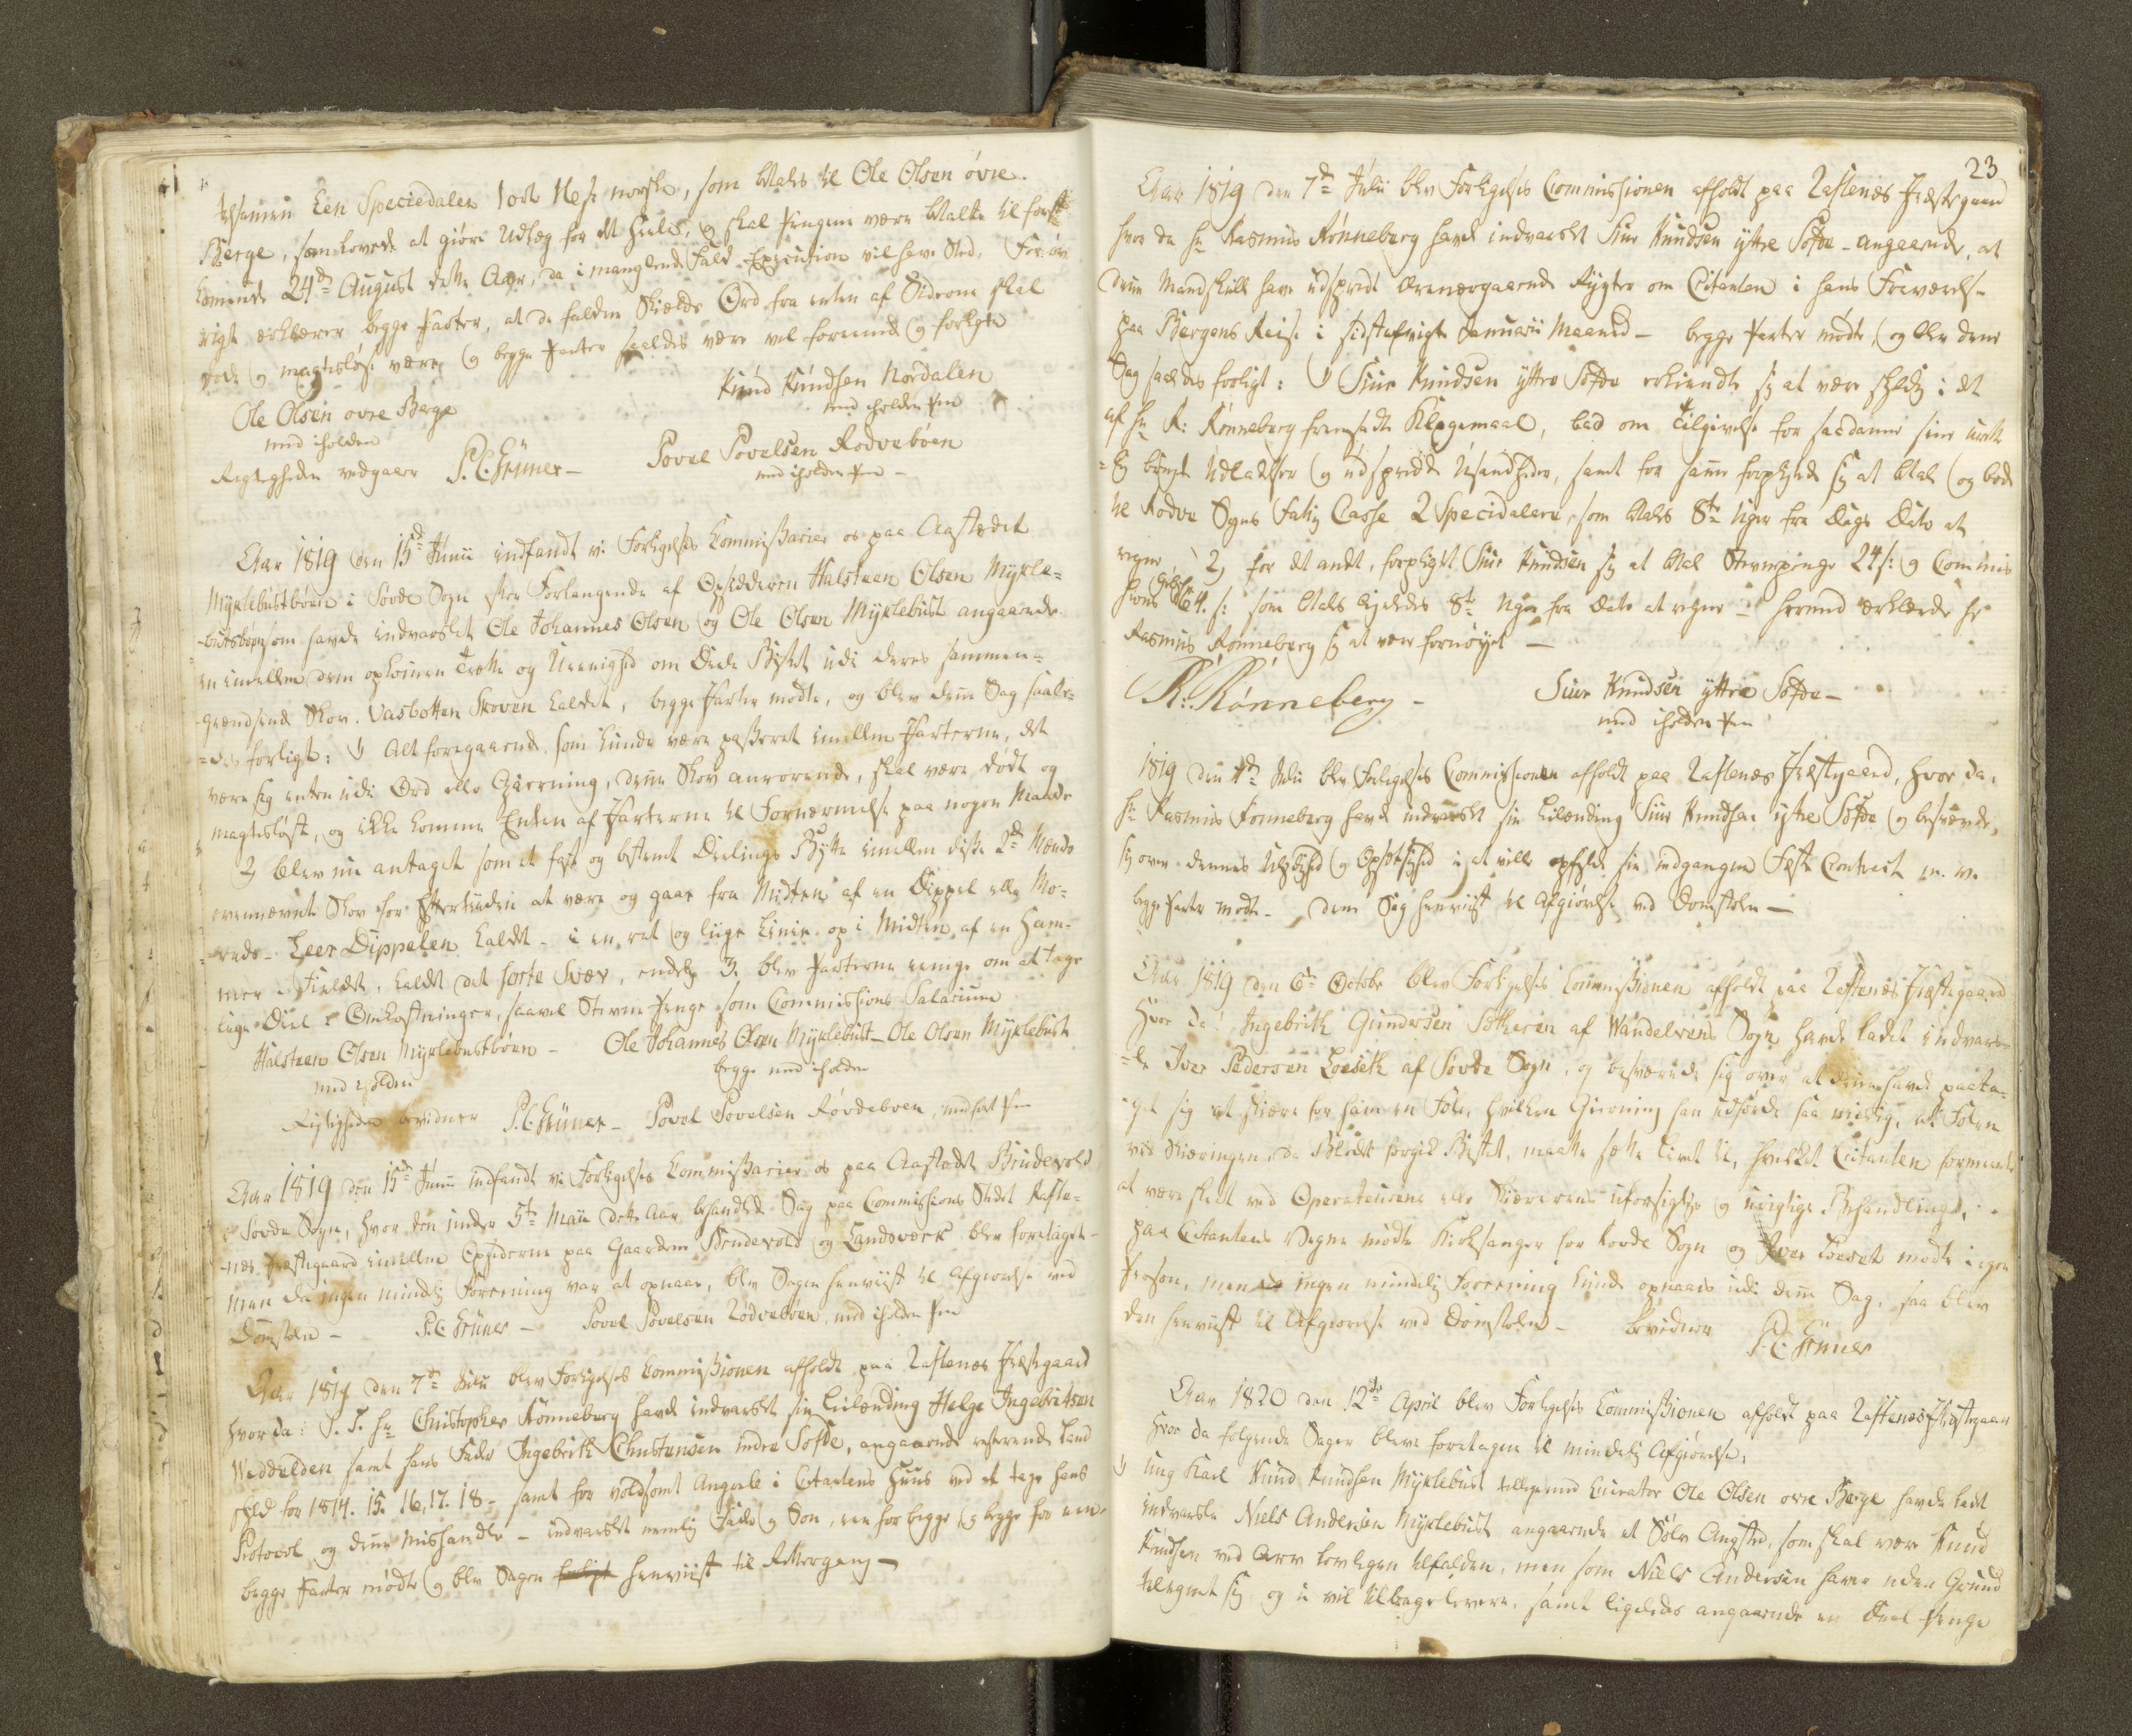 tilsamen Een Speciedaler 1 ort 16 s norske, som betales til Ole Olsen øvre
Berge, som lovede at giøre Udlæg for det heele, og skal Pengene være betalte til først
komende 24de August dette Aar, da i manglende Fald Execution vil have Sted. For øv
rigt erklærer begge Parter, at de faldne Skields Ord fra enten af Siderne skal
døde og magtesløse være, og begge Parter saaledes være vel foreenede og forligte
Ole Olsen øvre Berge
med iholden
Knud Knudsen Nordalen
med iholden Pen
Rigtigheden vedgaaer P. C. Grüner -
Povel Povelsen Rødvebøen
med iholden Pen -
Aar 1819 den 15de Junii indfandt vi Forligelses Commissarier os paa Aastædet
Myklebustbøen i Søvde Sogn efter Forlangende af Opsidderen Halsteen Olsen Mykle-
-bustbøen som havde indvarslet Ole Johannes Olsen og Ole Olsen Myklebust angaaende
en imellem dem opkomen Trætte og Ueenighed om Deele Byttet udi deres sammen-
grændsende Skov Vasbotten Skoven kaldet, begge Parter mødte, og blev denne Sag saale-
-des forligt: 1) Alt foregaaende som kunde være passeret imellem Parterne, det
være sig enten udi Ord eller Gierning, denne Skov anrørende, skal være dødt og
magtesløst, og ikke komme Enten af Parterne til Fornærmelse paa nogen Maade
2) blev nu antaget som et fast og bestemt Deelings Bytte imellem disse 2de Mænds
ovennævnte Skov for Eftertiiden at være og gaae fra Midten af en Dippel eller Mo-
-rads - Leer Dippelen kaldet - i en ret og liige Linie op i Midten af en Ham-
mer i Fieldet, kaldet det sorte Svær, endelig 3. blev Parterne eenige om at tage
lige Deel i Omkostninger, saavel Stevne Penge som Commissions Salarium
Halsteen Olsen Myklebustbøen - Ole Johannes Olsen Myklebust - Ole Olsen Myklebust
med iholden
begge med iholden
Rigtigheden bevidner P. C. Grüner - Povel Povelsen Rødvebøen, med ført Pen
Aar 1819 den 15de Junii indfandt vi Forligelses Commissarier os paa Aastædet Brudevold
i Søvde Sogn, hvor den under 5te Maii dette Aar behandlede Sag paa Commissions Stedet Rafte-
-næs Præstegaard imellem Opsidderne paa Gaardene Brudevold og Landsverk blev foretaget -
Men da ingen mindelig Foreening var at opnaae, blev Sagen henviist til Afgiørelse ved
Domstolen - P. C. Grüner - Povel Povelsen Rødvebøen, med iholden Pen
Aar 1819 den 7de Julii blev Forligelses Commissionen afholdt paa Raftenæs Præstegaard
hvor da: S. T. Hr Christopher Rønneberg havde indvarslet sin Leilænding Helge Ingebritsen
Waddulden samt hans Fader Ingebrith Christensen indre Søfde, angaaende resterende Land
skyld for 1814. 15. 16, 17. 18 - samt for voldsomt Angreb i Citantens Huus ved at tage hans
Protocol og denne mishandle - indvarslet nemlig Fader og Søn, een for begge og begge for een -
begge Parter mødte og blev Sagen forligt henviist til Rettergang -
23
Aar 1819 den 7de Julii blev Forligelses Commissionen afholdt paa Raftenæs Præstegaard
hvor da Hr Rasmus Rønneberg havde indvarslet Siur Knudsen yttre Søfde - angaaende, at
denne Mand skulle have udspredt ærenærgaaende Rygter om Citanten i hans Fraværelse
paa Bergens Reise i sidstafvigte Januarii Maaned - begge Parter mødte, og blev denne
Sag saaledes forligt: 1) Siur Knudsen yttre Søfde erkiendte sig at være skyldig i det
af Hr R: Rønneberg fremsadte Klagemaal, bad om Tilgivelse for saadanne sine uret-
-viise Udladelser og udspredde Usandheder, samt for samme forpligtede sig at betale og bøde
til Rødve Sogns Fattig Casse 2 Speciedaler, som betales 8te Uger fra Dags Dato at
regne 2) for det andet, forpligtet Siur Knudsen sig at betale Stevnepenge 24 s: og Commis
sions Gebyhr 64. s: som betales ligeledes 8te Uger fra Dato at regne - hermed erklærede Hr
Rasmus Rønneberg sig at være fornøyet -
R: Rønneberg -
Siur Knudsen yttre Søfde -
med iholden Pen
1819 den 7de Julii blev Forligelses Commissionen afholdt paa Raftenæs Præstgaard, hvor da
Hr Rasmus Rønneberg havde indvarslet sin Leilænding Siur Knudsen yttre Søfde og besværede
sig over dennes Ulydighed og Opsætsighed i at ville opfylde sin indgangne Fæste Contract m. v.
begge Parter mødte - denne Sag henviist til Afgiørelse ved Domstolen -
Aar 1819 den 6te Octobr blev Forligelses Commissionen afholdt paa Raftenæs Præstegaard
Hvor da Ingebrith Gundersen Sætheren af Wandelvens Sogn havde ladet indvars-
-le Iver Pedersen Loeseth af Søvde Sogn, og besværede sig over at denne havde paata-
-get sig at skiære for ham en Fole, hvilken Gierning han udførte saa urigtig, at Folen
ved Skiæringen da Blodet forgik Bæstet, maatte sætte Livet til, hvilket Citanten formeente
at være skeet ved Operateurens eller Skiærerens uforsigtige og urigtige Behandling,
paa Citantens Vegne mødte Kirkesanger for Søvde Sogn og Iver Loeset mødte i egen
Person, men ingen mindelig Foreening kunde opnaaes udi denne Sag, saa blev
den henviist til Afgiørelse ved Domstolen - bevidner
P. C. Grüner
Aar 1820 den 12te April blev Forligelses Commissionen afholdt paa Raftenæs Præstegaard
Hvor da følgende Sager bleve foretagne til mindelig Afgiørelse,
1) Ung Karl Knud Knudsen Myklebust tilligemed Curator Ole Olsen øvre Berge havde ladet
indvarsle Niels Andersen Myklebust angaaende et Sølv Angster, som skal være Knud
Knudsen ved Arv lovligen tilfalden, men som Niels Andersen haver uden Grund
tilegnet sig og ei vil tilbagelevere, samt ligeledes angaaende en Deel Penge